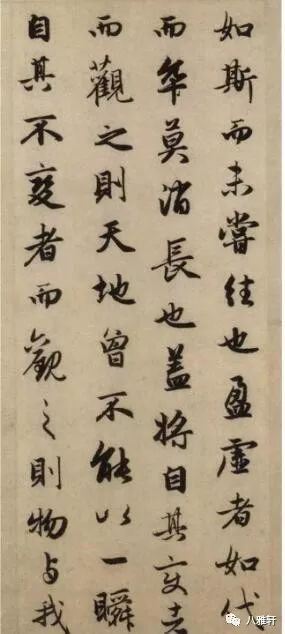 如斯而未嘗往也盈虚者如代
而卒莫消長也蓋將自其变者
而觀之則天地曾不能以一瞬
自其不變者而觀之則物与我
八雅轩